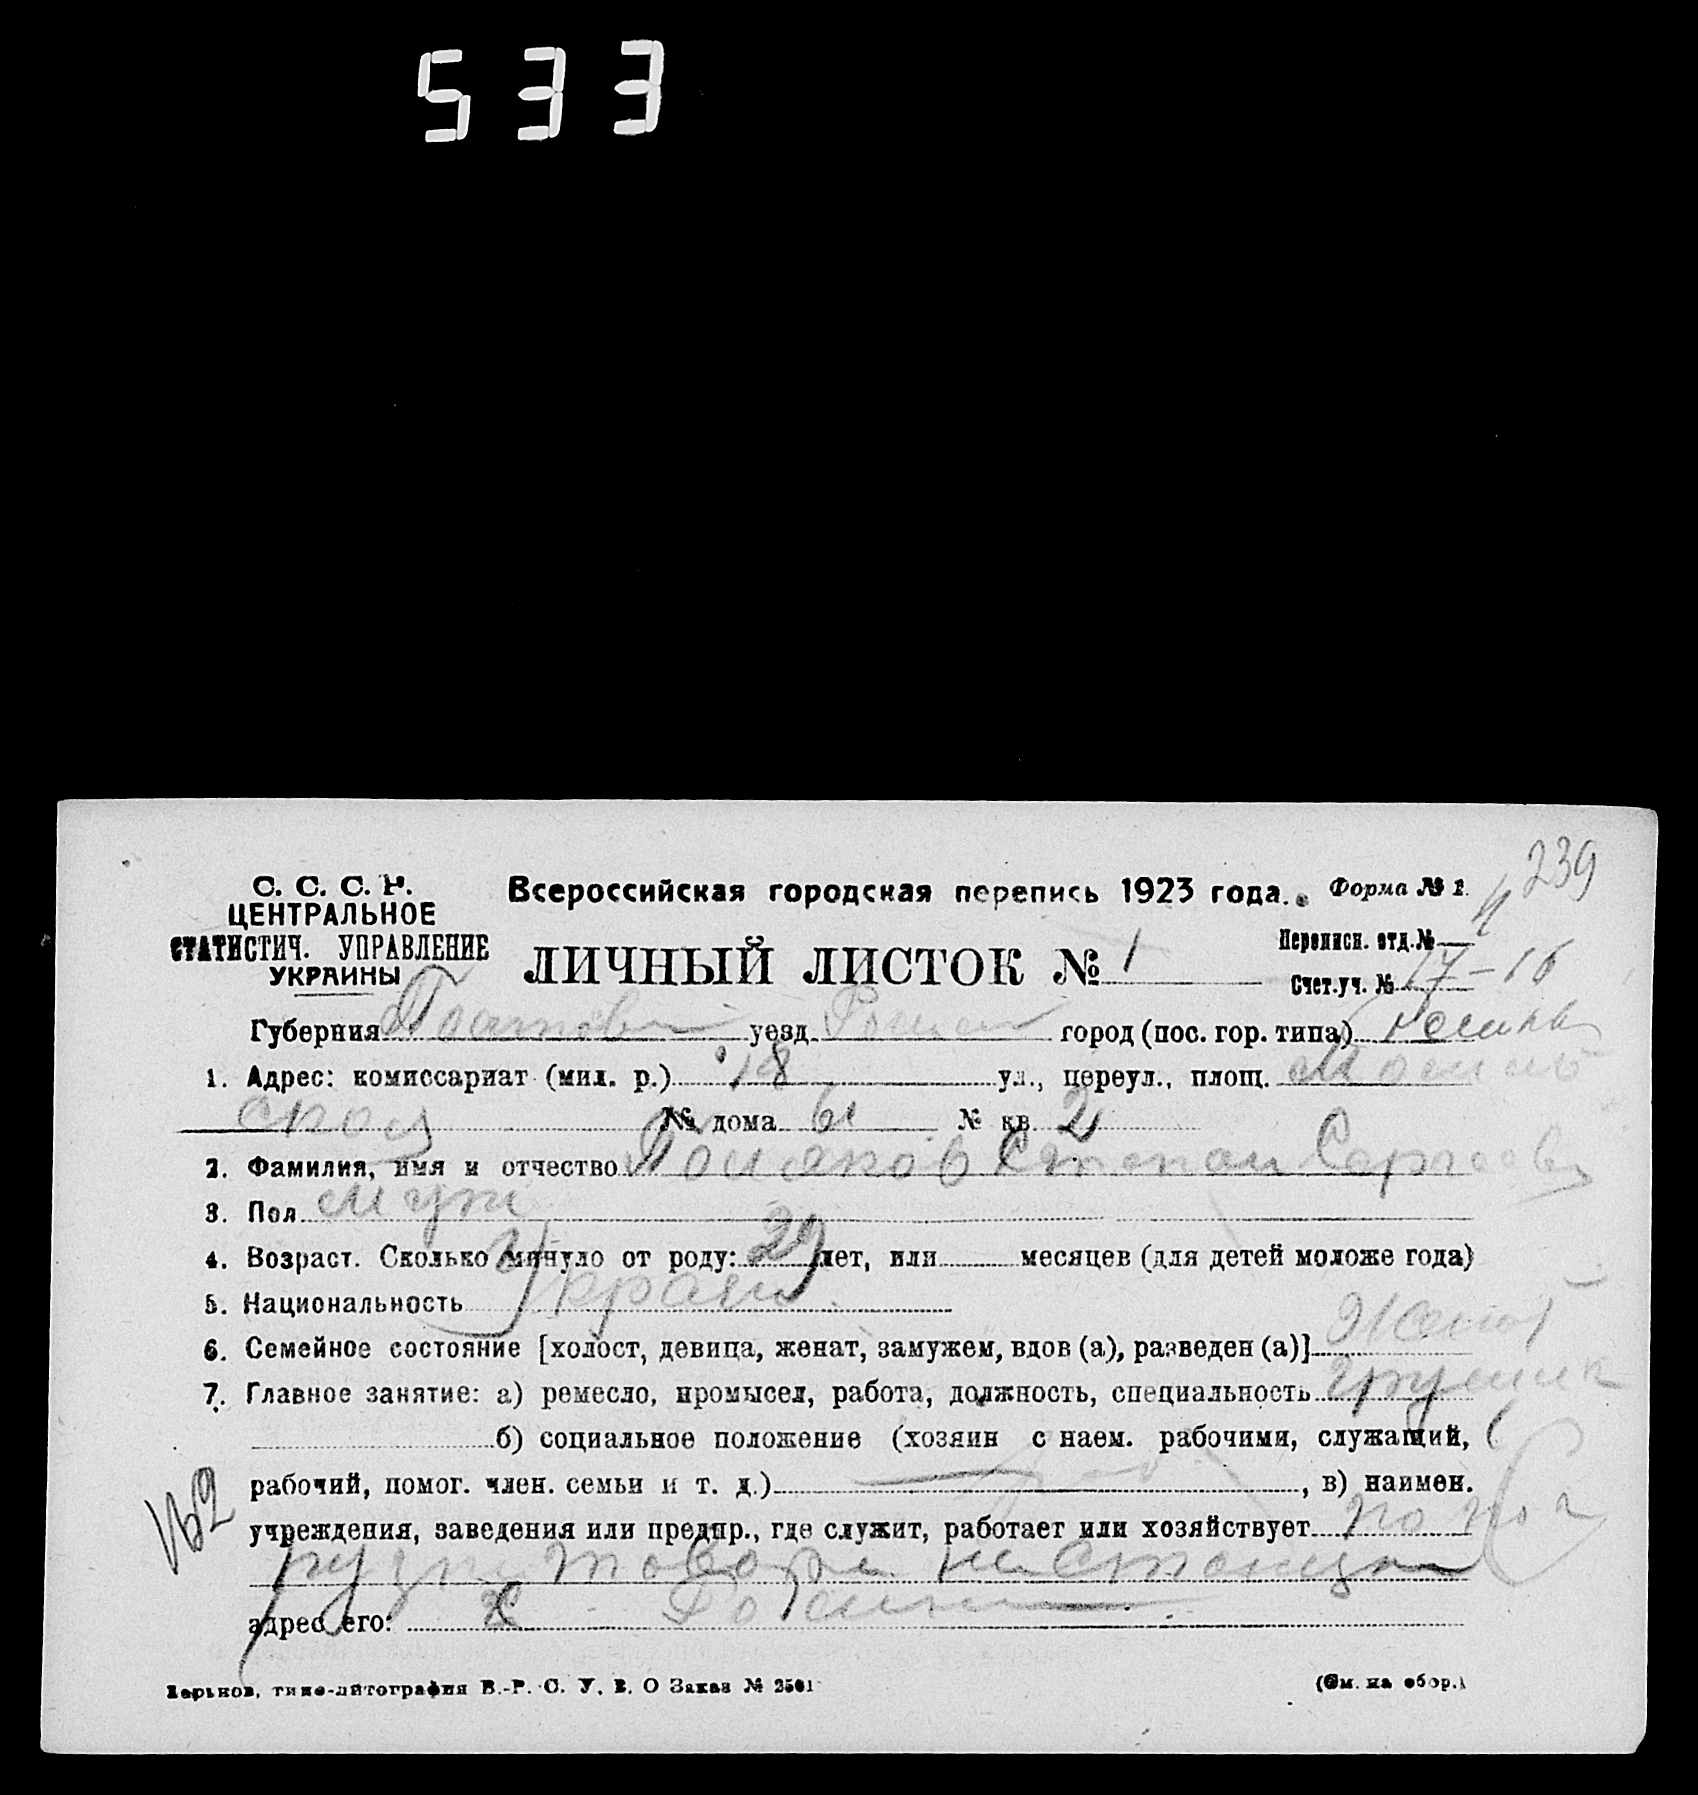 533
239
С. С. С. Р.
ЦЕНТРАЛЬНОЕ
СТАТИСТИЧ. УПРАВЛЕНИЕ
УКРАИНЫ
Всероссийская городская перепись 1923 года. Форма № 1.
ЛИЧНЫЙ ЛИСТОК № 1
Переписн. отд. №
Счет. уч. № 17-16
Губерния уезд город (пос. гор. типа)
1. Адрес: комиссариат (мил. р.) 18 ул., переул., площ.
ская № дома 61 № кв. 2
2. Фамилия, имя и отчество Степан
3. Пол муж
4. Возраст. Сколько минуло от роду: 29 лет, или месяцев (для детей моложе года)
5. Национальность Украин
6. Семейное состояние [холост, девица, женат, замужем, вдов (а), разведен (а)] Женат
7. Главное занятие: а) ремесло, промысел, работа, должность, специальность грузчик
б) социальное положение (хозяин с наем. рабочими, служащий,
рабочий, помог. член. семьи и т. д.) , в) наимен.
учреждения, заведения или предпр., где служит, работает или хозяйствует по пог
рузки товара на станции
адрес его:
Харьков, типо-литография В.-Р. С. У. В. О Заказ № 2501
(См. на обор.)